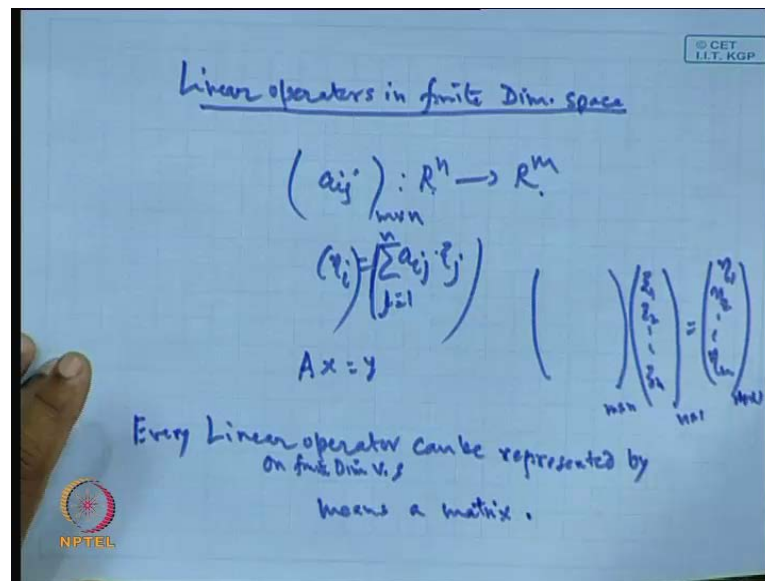 © CET
I.I.T. KGP
Linear operators in finite Dim. space
(aij)m×n : R^n → R^m
(ηi) = (∑_{j=1}^{n} aij ξj)
( )m×n (ξ1 ξ2 ⋮ ξn)n×1 = (η1 η2 ⋮ ηm)m×1
Ax = y
Every Linear operator can be represented by
on finite Dim V.S
means a matrix.
NPTEL